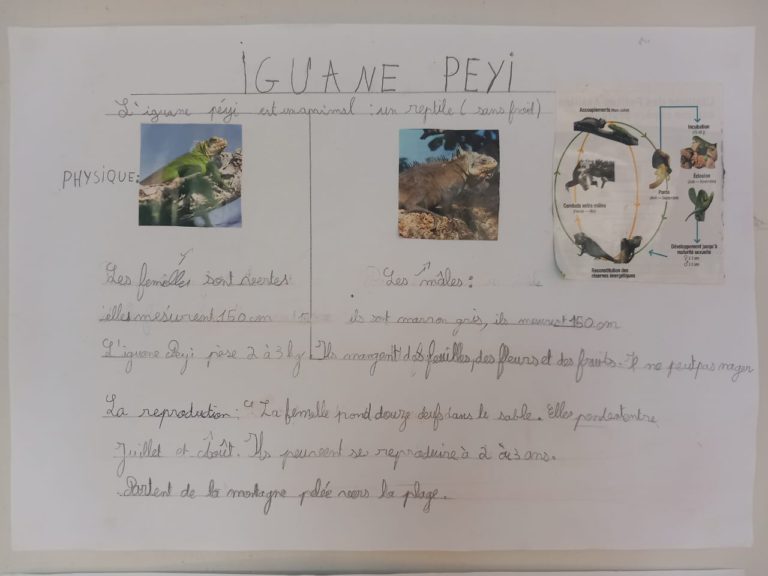 IGUANE PEYI
L'iguane péyi est un animal : un reptile (sans froid)
PHYSIQUE:
Les femelles sont vertes
elles mesurent 150 cm
Les mâles :
ils sont marron gris, ils meurest 150 cm
L'iguane Peyi pèse 2 à 3 kg Ils mangent des feuilles, des fleurs et des fruits. Il ne peut pas nager
La reproduction : La femelle pond douze œufs dans le sable. Elles pondent entre
Juillet et Août. Ils peuvent se reproduire à 2 à 3 ans.
Partent de la montagne pelée vers la plage.
Accouplements
Incubation
Éclosion
Ponte
Combats entre mâles
Développement jusqu'à
maturité sexuelle
Reconstitution des
réserves énergétiques